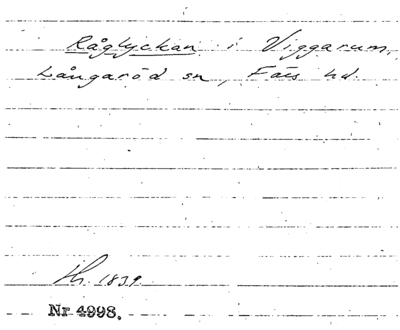 Råglyckan i Viggarum,
Långaröd sn, Färs hd.
Hs. 1839
Nr 4998.